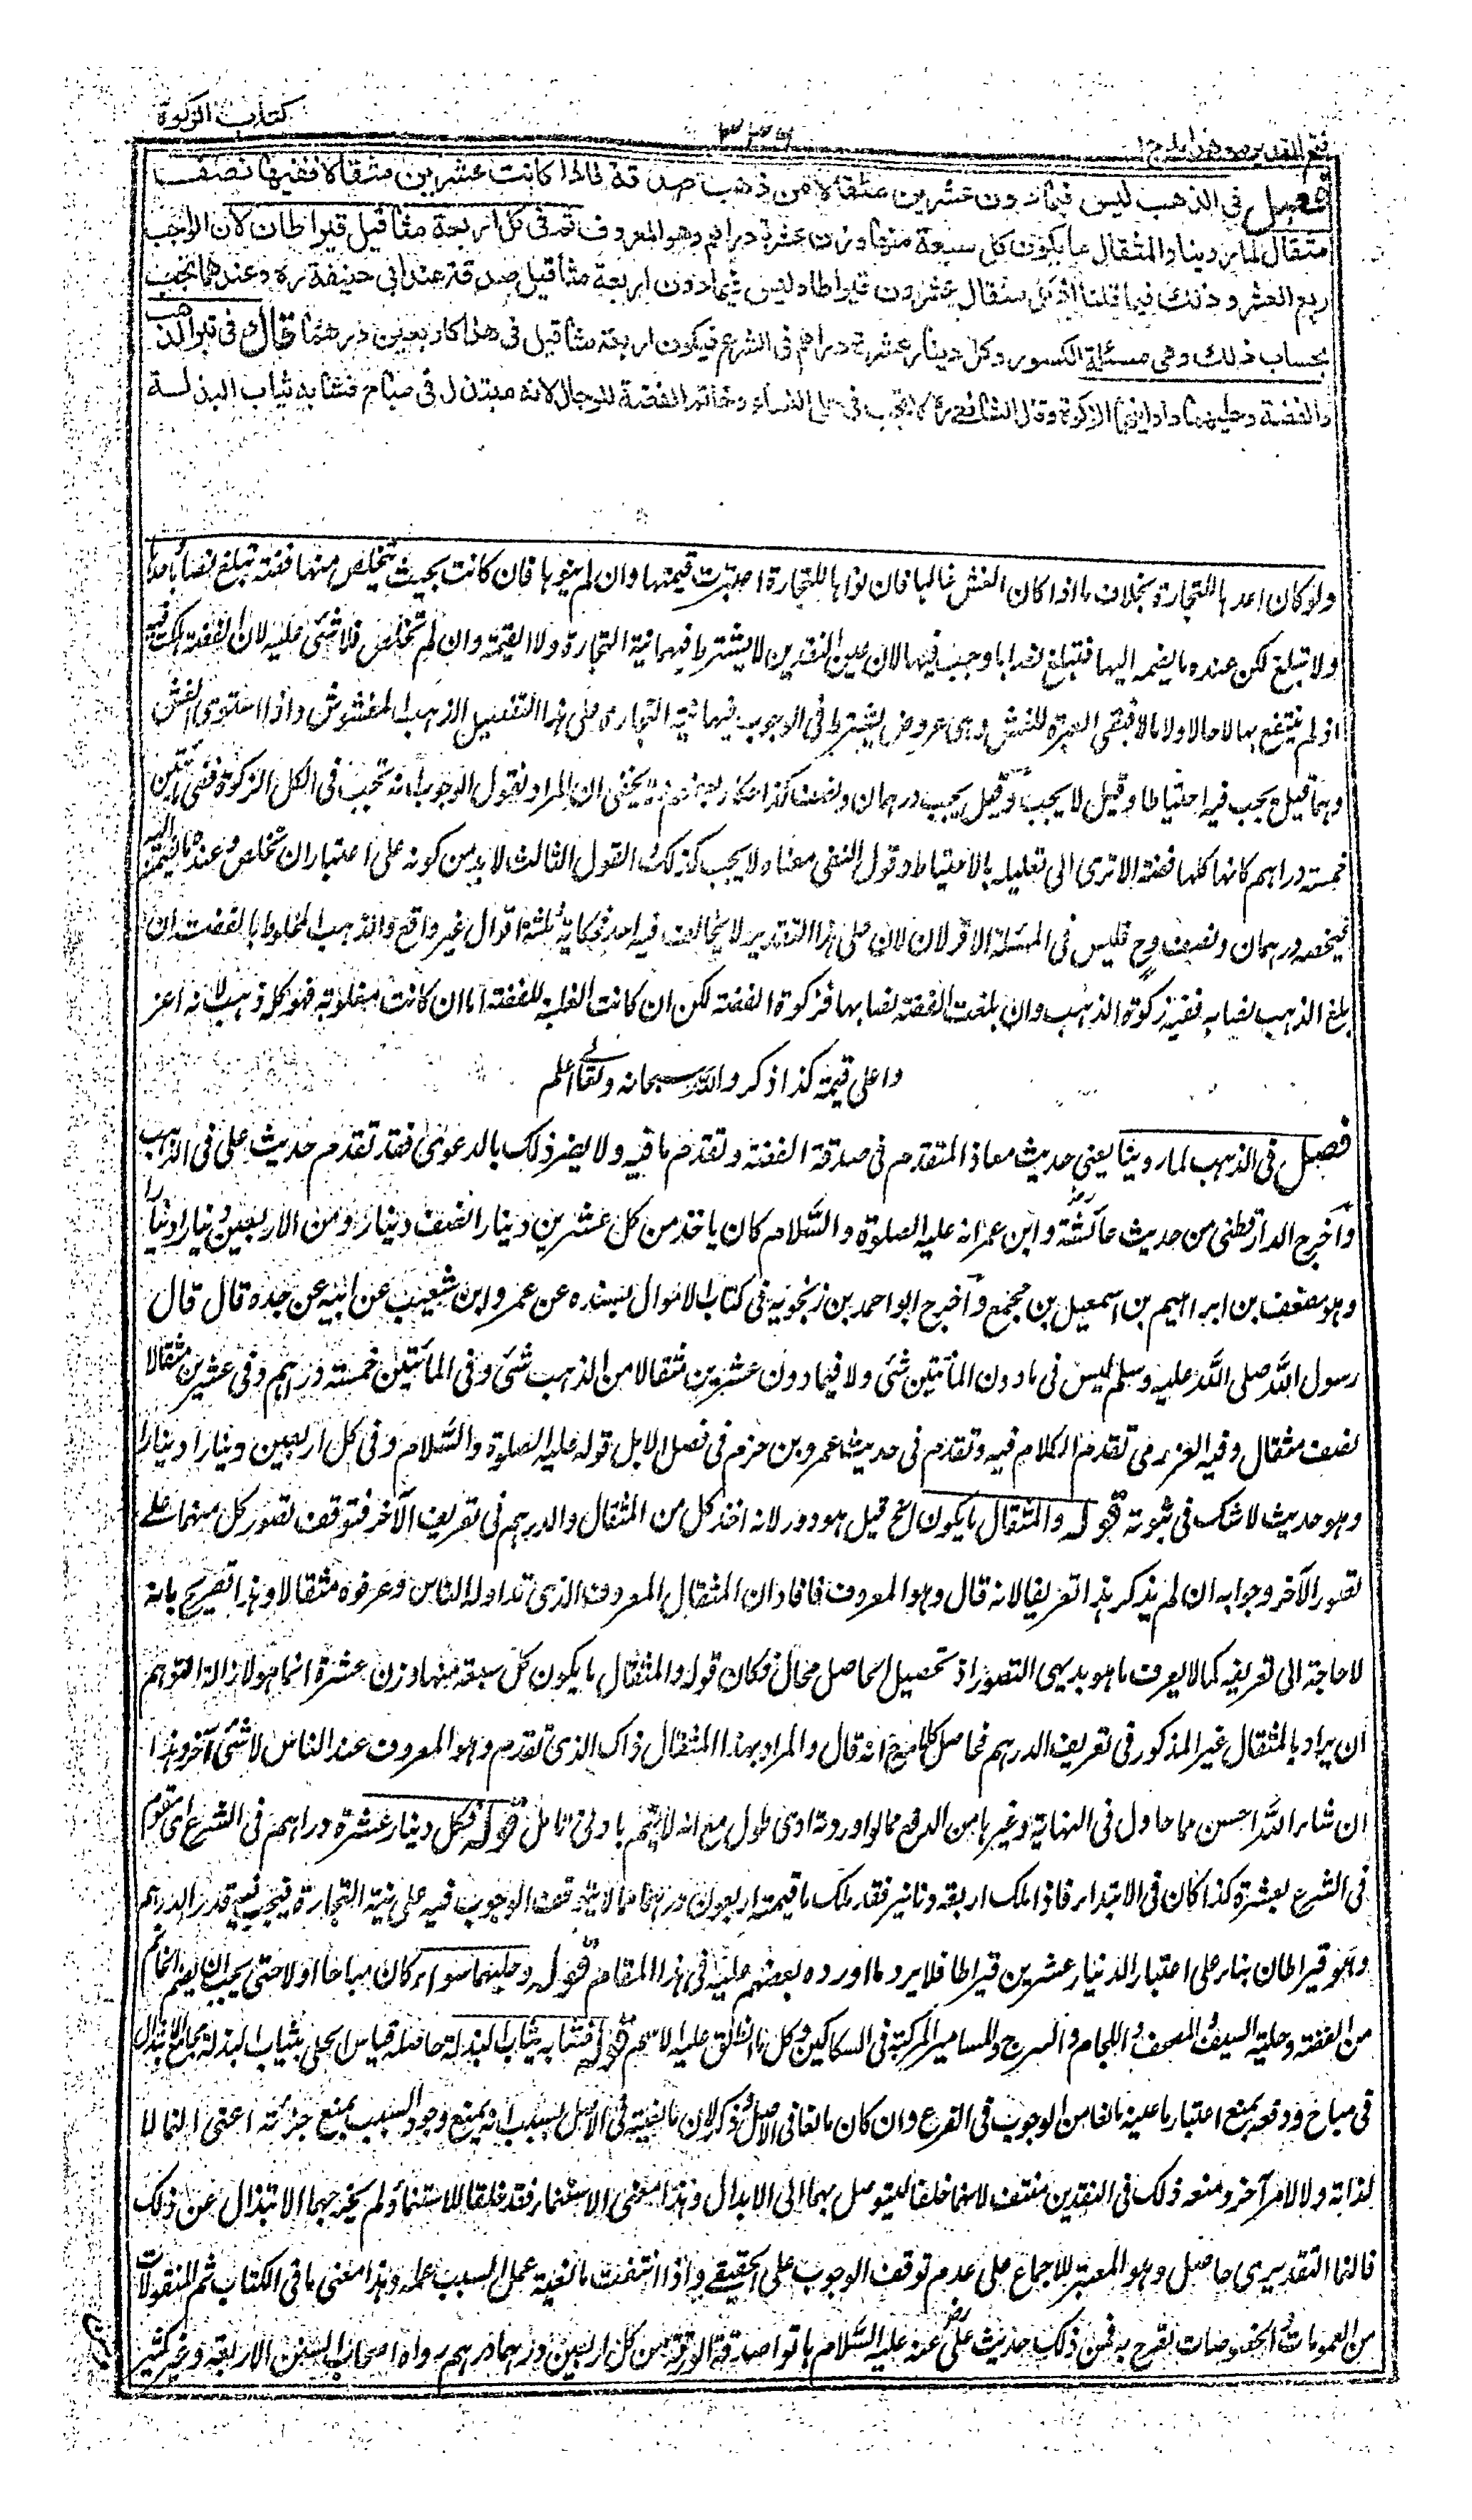 كتاب الزكوة
فتح القدير مع هداية ج ١
فصل في الذهب ليس فيما دون عشرين مثقالا من ذهب صدقة فاذا كانت عشرين مثقالا ففيها نصف
مثقال لما روينا والمثقال ما يكون كل سبعة منها وزن عشرة دراهم وهو المعروف ثم في كل اربعة مثاقيل قيراطان لان الواجب
ربع العشر وذلك فيما قلنا اذ كل مثقال عشرون قيراطا وليس فيما دون اربعة مثاقيل صدقة عند ابي حنيفة ره وعندهما تجب
بحساب ذلك وهي مسئلة الكسور وكل دينار عشرة دراهم في الشرع فيكون اربعة مثاقيل في هذا كاربعين درهما قال وفي تبر الذهب
والفضة وحليهما واوانيهما الزكوة وقال الشافعي ره لا تجب في حلي النساء وخاتم الفضة للرجال لانه مبتذل في مباح فشابه ثياب البذلة
ولو كان اعدها للتجارة بخلاف ما اذا كان الغش غالبا فان نواها للتجارة اعتبرت قيمتها وان لم ينوها فان كانت بحيث يتخلص منها فضة تبلغ نصابا وحدها
ولا تبلغ لكن عنده ما يضمه اليها فتبلغ نصابا وجب فيها لان عين النقدين لا يشترط فيهما نية التجارة ولا القيمة وان لم تخلص فلا شئ عليه لان الفضة هلكت فيه
اذ لم ينتفع بها لا حالا ولا مالا فبقى العبرة للغش وهى عروض يشترط في الوجوب فيها نية التجارة وعلى هذا التفصيل الذهب المغشوش واذا استوى الغش
وهما قيل يجب فيه احتياطا وقيل لا يجب وقيل يجب درهمان ونصف كذا حكاه بعضهم ولا يخفى ان المراد بقول الوجوب انه تجب في الكل الزكوة ففي مائتين
خمسة دراهم كانها كلها فضة الا ترى الى تعليله بالاحتياط وقول النفى معناه لا يجب كذلك القول الثالث لا بد من كونه على اعتبار ان تخلص وعنده ما يضمه اليه
فيخصه درهمان ونصف وح فليس في المسئلة الا قولان لان على هذا التقدير لا يخالف فيه احد فحكاية ثلثة اقوال غير واقع والذهب المخلوط بالفضة ان
بلغ الذهب نصابه ففيه زكوة الذهب وان بلغت الفضة نصابها فزكوة الفضة لكن ان كانت الغلبة للفضة اما ان كانت مغلوبة فهو كله ذهب لانه اعز
واعلى قيمة كذا ذكر والله سبحانه وتعالى اعلم
فصل في الذهب لما روينا يعني حديث معاذ المتقدم في صدقة الفضة وتقدم ما فيه ولا يضر ذلك بالدعوى فقد تقدم حديث علي في الذهب
واخرج الدارقطني من حديث عائشة رض وابن عمر انه عليه الصلوة والسلام كان ياخذ من كل عشرين دينارا نصف دينار ومن الاربعين دينارا دينارا
وهو مضعف بن ابراهيم بن اسمعيل بن مجمع واخرج ابو احمد بن زنجويه في كتاب الاموال بسنده عن عمرو ابن شعيب عن ابيه عن جده قال قال
رسول الله صلى الله عليه وسلم ليس في ما دون المأتين شئ ولا فيما دون عشرين مثقالا من الذهب شئ وفي المائتين خمسة دراهم وفي عشرين مثقالا
نصف مثقال وفيه العزرمي تقدم الكلام فيه وتقدم في حديث عمرو بن حزم في فصل الابل قوله عليه الصلوة والسلام وفي كل اربعين دينارا دينار
وهو حديث لا شك في ثبوته قوله والمثقال ما يكون الخ قيل هو دور لانه اخذ كل من المثقال والدرهم في تعريف الآخر فتوقف تصور كل منهما على
تصور الآخر وجوابه ان لم يذكر هذا تعريفا لانه قال وهو المعروف فافاد ان المثقال المعروف الذي تداوله الناس وعرفوه مثقالا وهذا تصريح بانه
لا حاجة الى تعريفه كما لا يعرف ما هو بديهى التصور اذ تحصيل الحاصل محال فكان قوله والمثقال ما يكون كل سبعة منها وزن عشرة انما هو لازالة التوهم
ان يراد بالمثقال غير المذكور في تعريف الدرهم فحاصل كلامه انه قال والمراد بهذا المثقال ذاك الذي تقدم وهو المعروف عند الناس لا شئ آخر وهذا
ان شاء الله احسن مما حاول في النهاية وغيرها من الدفع مما لو اوردته ادى طول مع انه لا يتم بادنى تامل قوله فكل دينار عشرة دراهم في الشرع اى مقوم
في الشرع بعشرة كذا كان في الابتداء فاذا ملك اربعة دنانير فقد ملك ما قيمته اربعون درهما مما لا يتوقف الوجوب فيه على نية التجارة فيجب فيه قدر الدرهم
وهو قيراطان بناء على اعتبار الدينار عشرين قيراطا فلا يرد ما اورده بعضهم عليه في هذا المقام قوله وحليهما سواء كان مباحا اولا حتى يجب ان يضم الخاتم
من الفضة وحلية السيف والمصحف واللجام والسرج والمسامير المركبة في السكاكين وكل ما انطلق عليه الاسم قوله فشابه ثياب البذلة حاصله قياس الحلى بثياب البذلة بجامع الابتذال
في مباح ودفعه بمنع اعتبار ما عينه مانعا من الوجوب في الفرع وان كان مانعا في الاصل وذكر لان مانعيته في الاصل بسبب انه يمنع وجود السبب بمنع جزئه اعنى النما لا
لذاته ولا لامر آخر ومنعه ذلك في النقدين منتف لانهما خلقا ليتوصل بهما الى الابدال وهذا معنى الاستنماء فقد خلقا للاستنماء ولم يخرجهما الابتذال عن ذلك
فالنما التقديرى حاصل وهو المعتبر للاجماع على عدم توقف الوجوب على الحقيقى واذا انتفت مانعيته عمل السبب عمله وهذا معنى ما في الكتاب ثم المنقولات
من العمومات والخصوصات تصرح به فمن ذلك حديث على رض عنه عليه السلام هاتوا صدقة الرقة من كل اربعين درهما درهم رواه اصحاب السنن الاربعة وغيره كثير